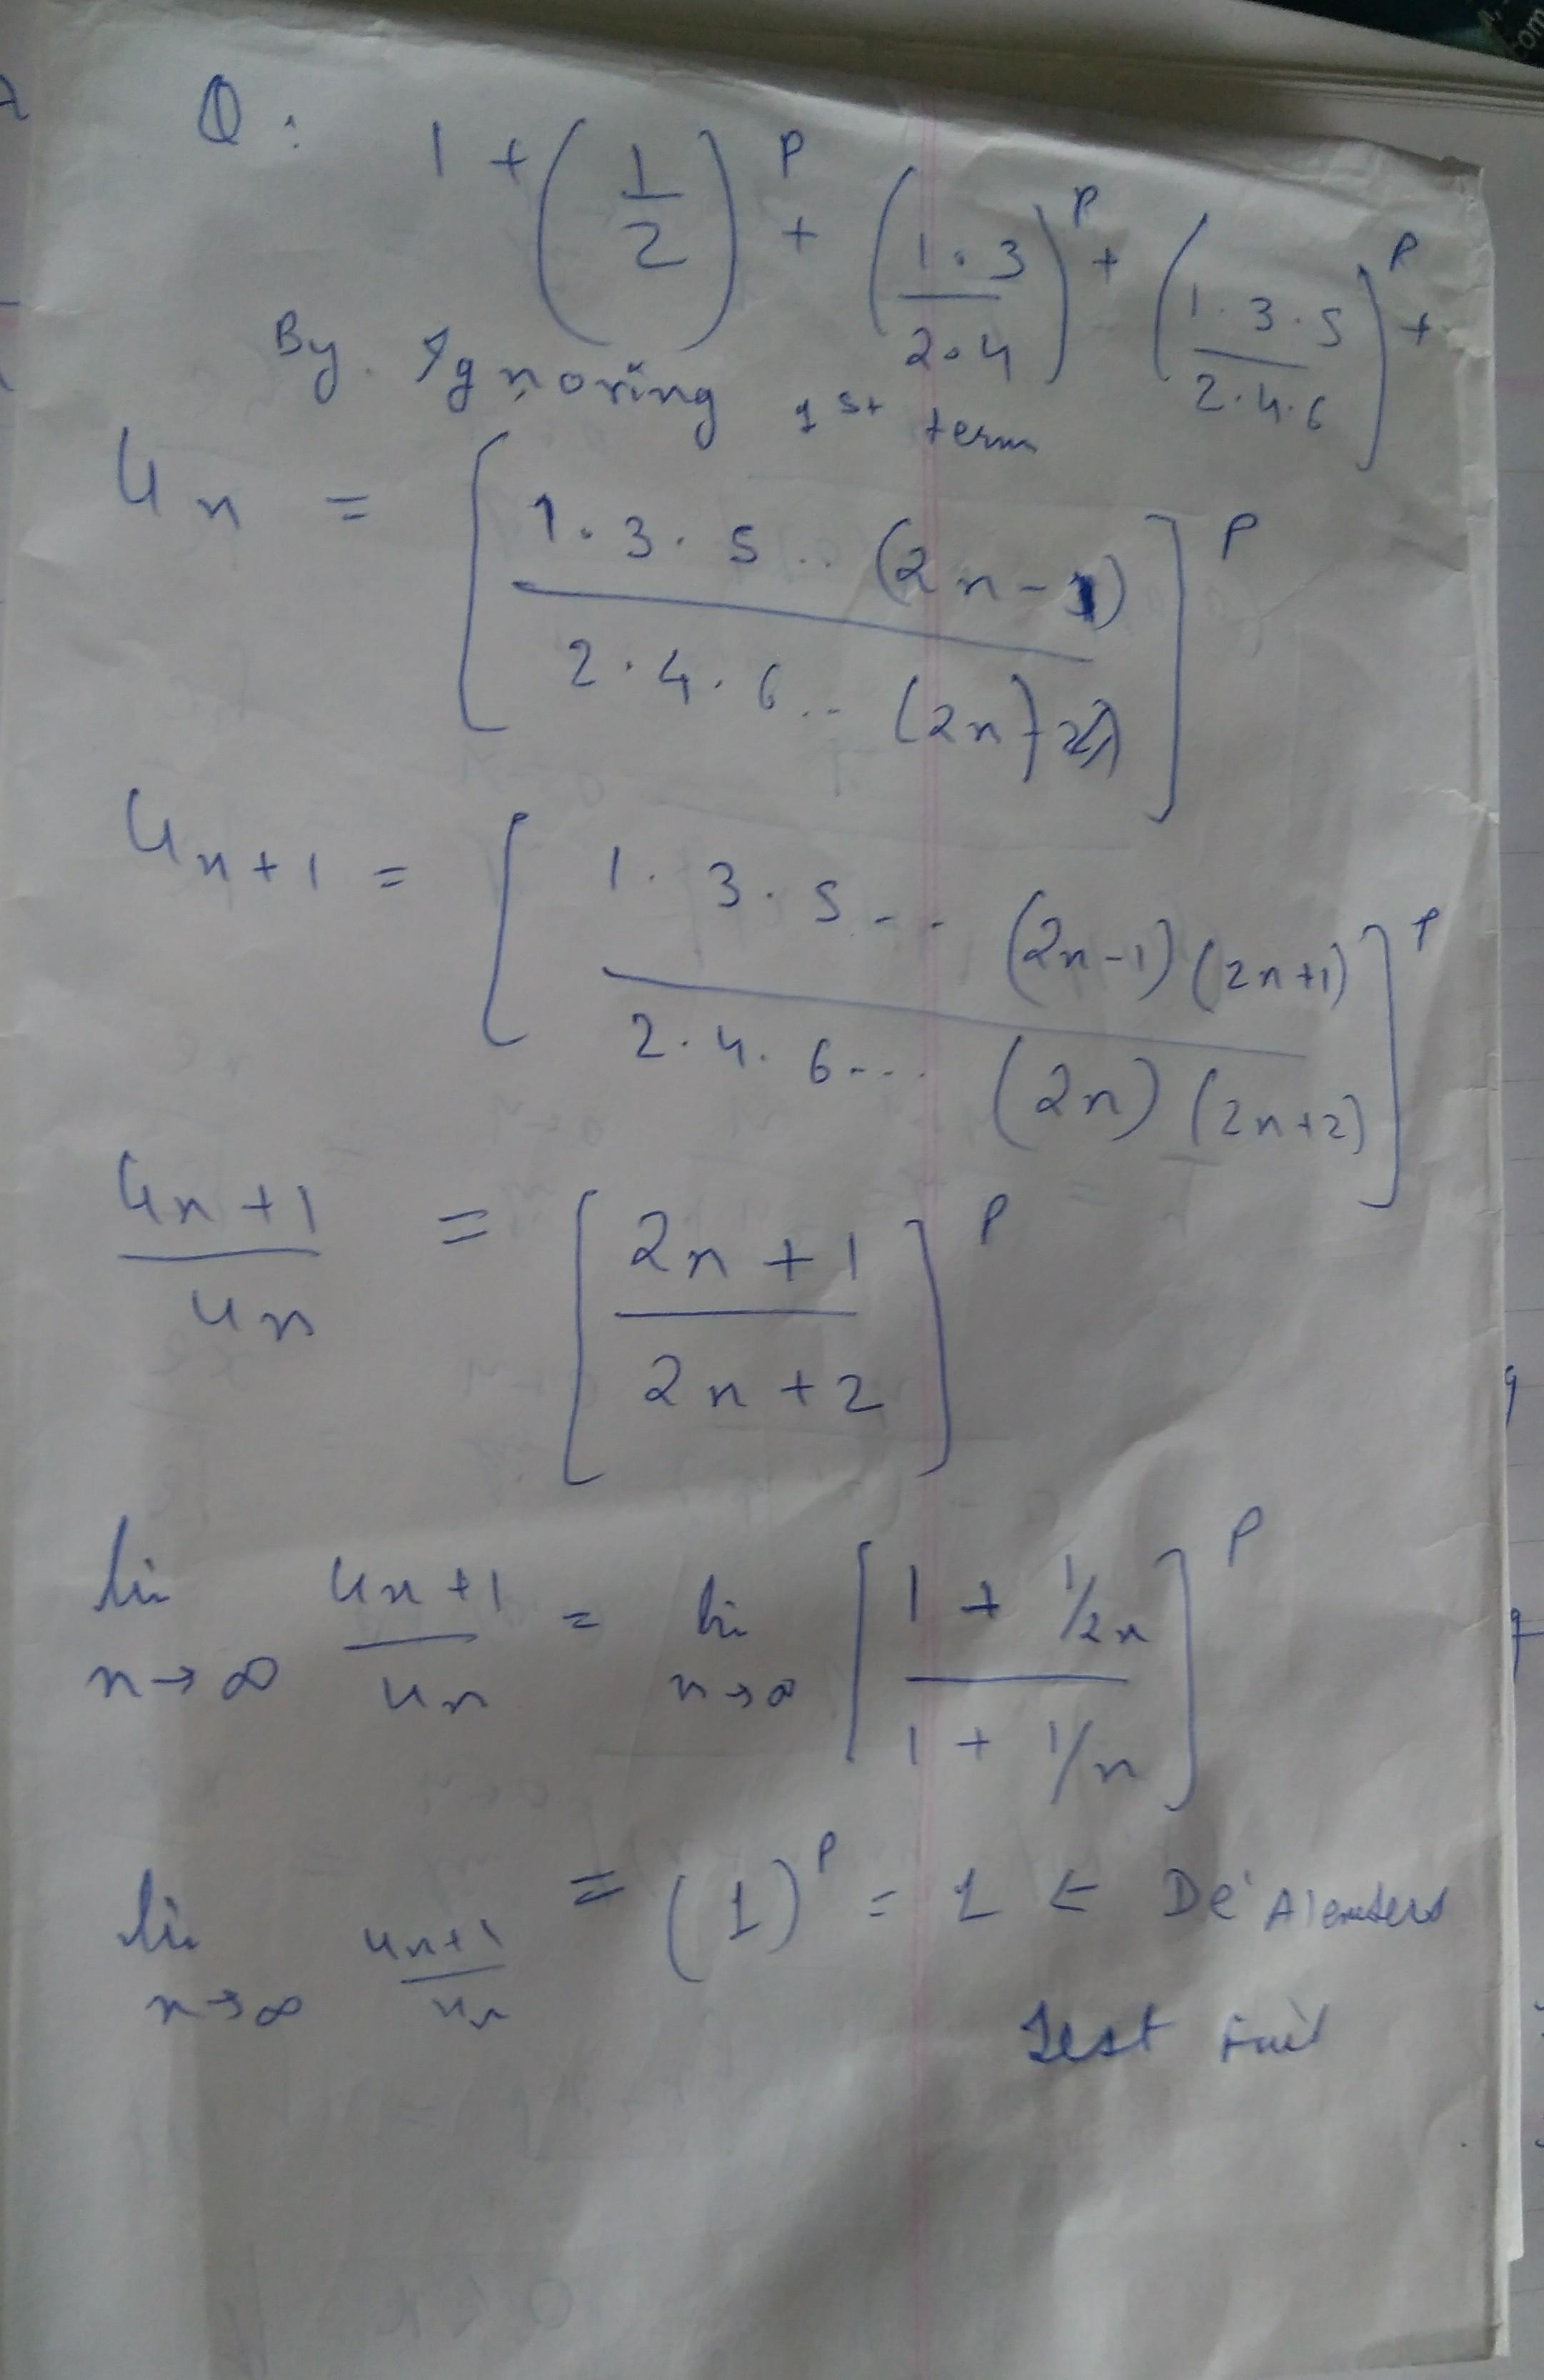 Q: 1 + (1/2)^P + (1·3/2·4)^P + (1·3·5/2·4·6)^P +
By Ignoring 1st term
Un = [1·3·5.. (2n-1) / 2·4·6.. (2n)]^P
Un+1 = [1·3·5... (2n-1)(2n+1) / 2·4·6... (2n)(2n+2)]^P
Un+1/Un = [2n+1 / 2n+2]^P
lim n→∞ Un+1/Un = lim n→∞ [1 + 1/2n / 1 + 1/n]^P
lim n→∞ Un+1/Un = (1)^P = 1 ← De'
Test fail